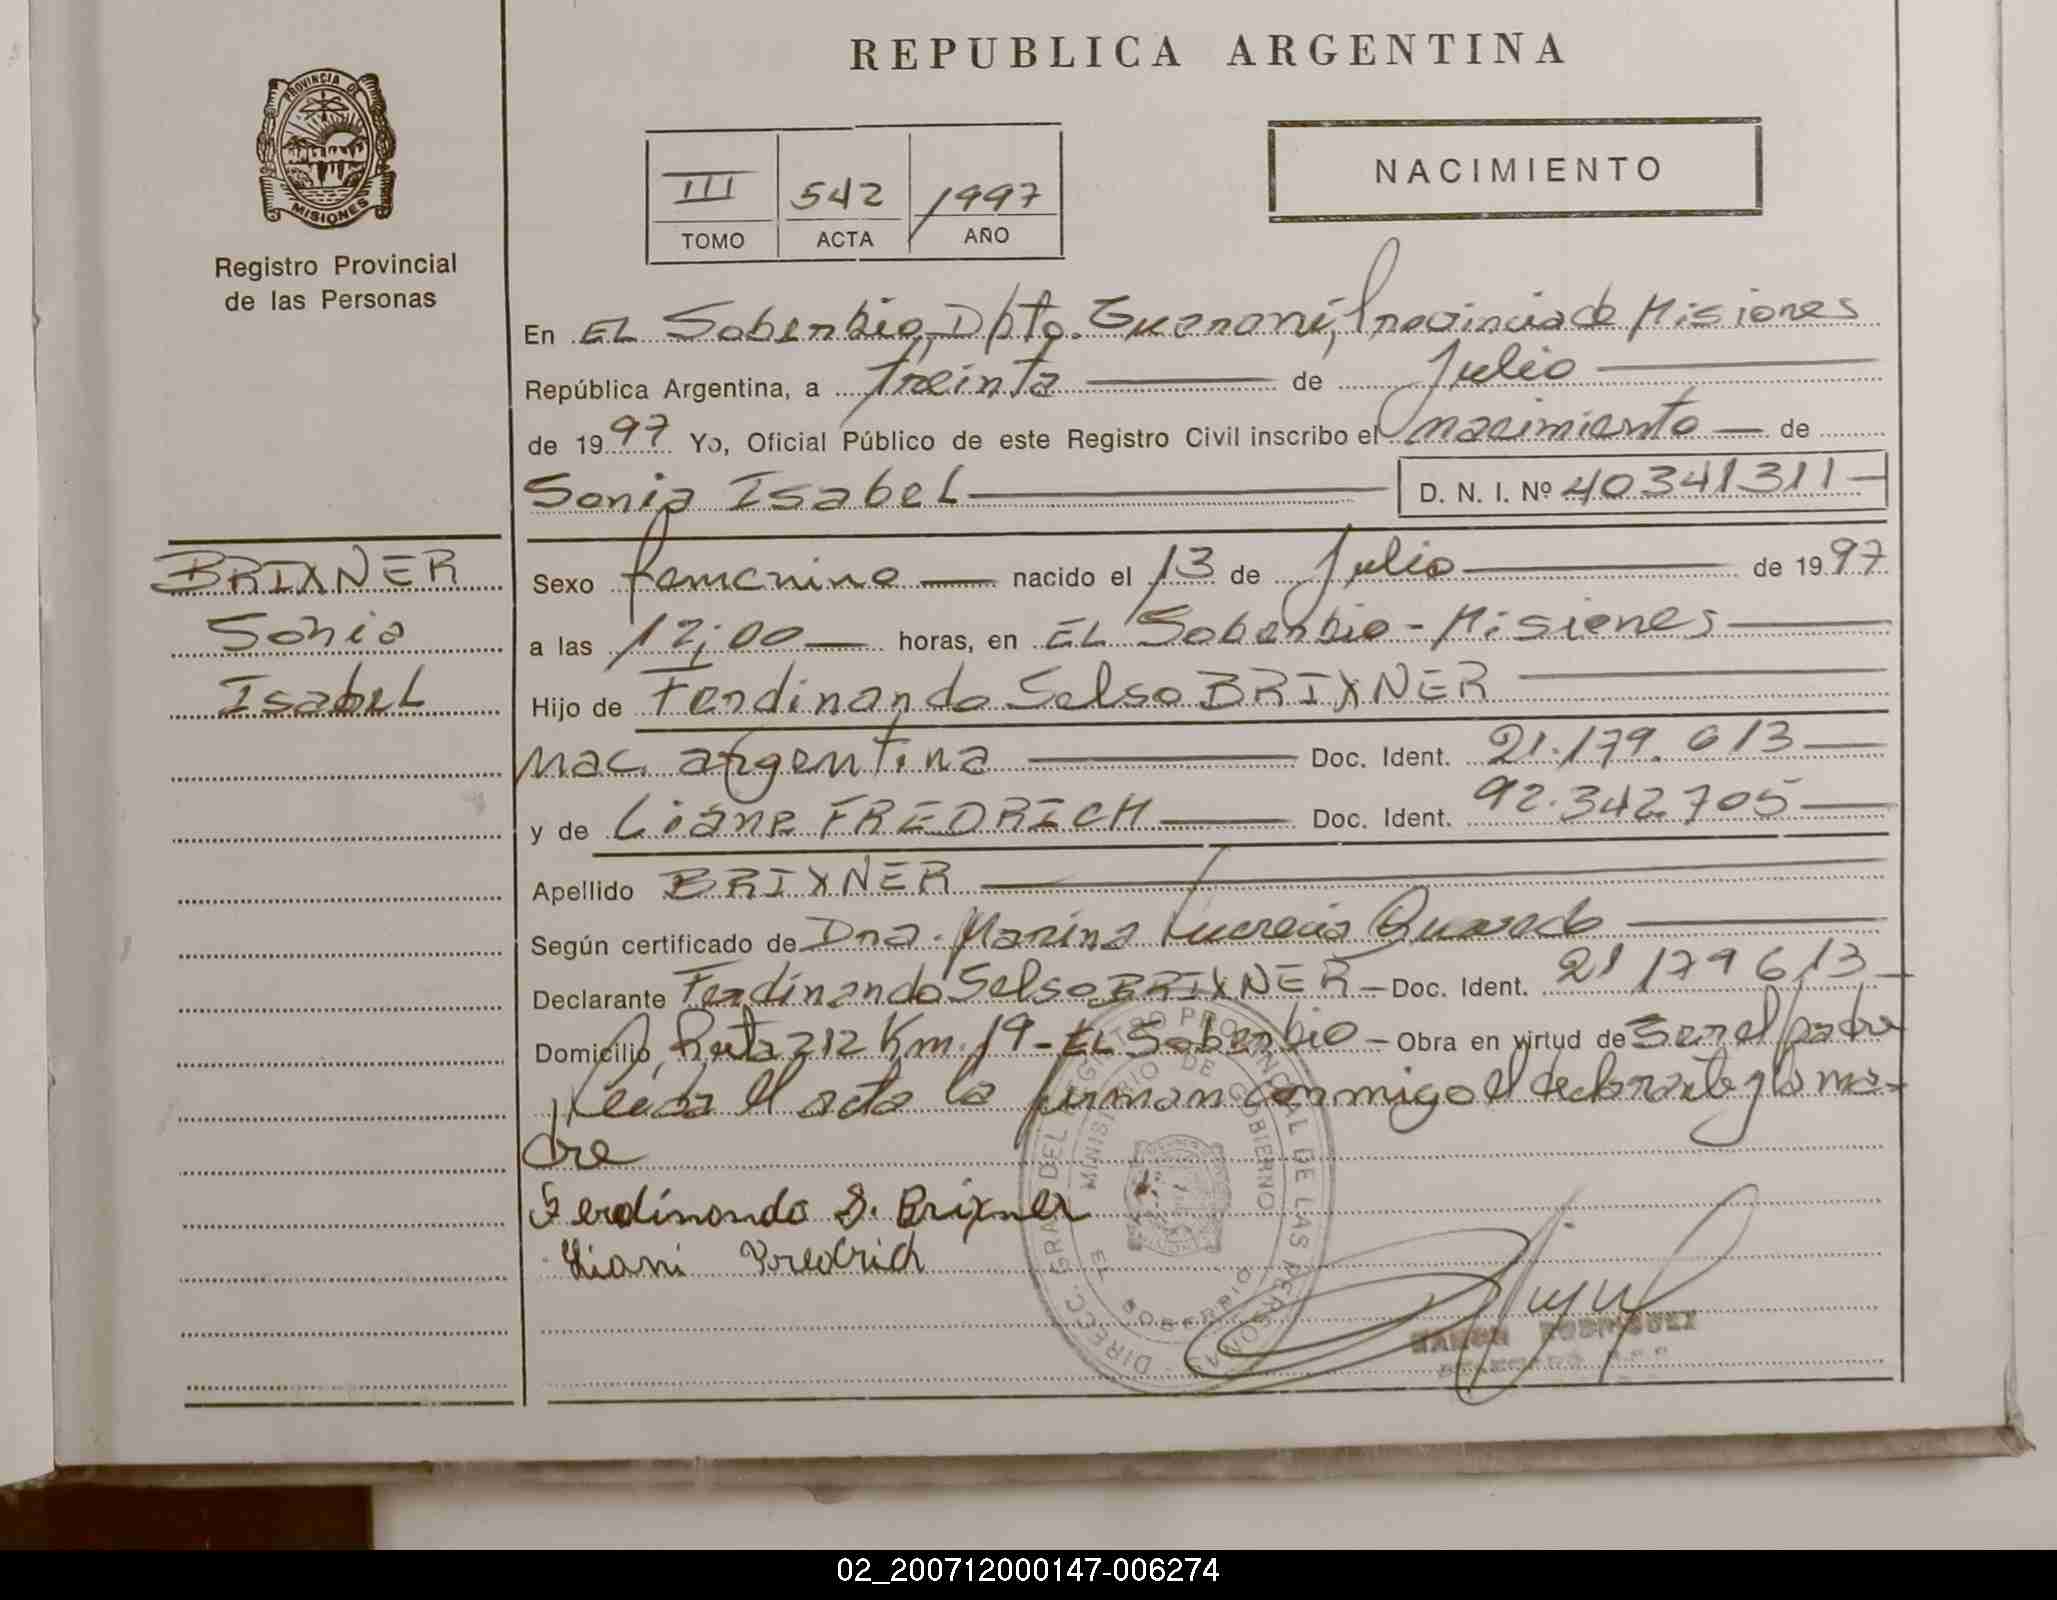 REPUBLICA ARGENTINA
PROVINCIA DE
MISIONES
Registro Provincial
de las Personas
III 542 1997
TOMO ACTA AÑO
NACIMIENTO
En EL Soberbio, Dpto. Guaraní, Provincia de Misiones
República Argentina, a treinta de Julio
de 1997 Yo, Oficial Público de este Registro Civil inscribo el nacimiento de
Sonia Isabel D. N. I. Nº 40341311
BRIXNER
Sonia
Isabel
Sexo femenino nacido el 13 de Julio de 1997
a las 12;00 horas, en EL Soberbio - Misiones
Hijo de Ferdinando Selso BRIXNER
nac. argentina Doc. Ident. 21.179.613
y de Liane FREDRICH Doc. Ident. 92.342705
Apellido BRIXNER
Según certificado de Dna. Marina Lucrecia
Declarante Ferdinando Selso BRIXNER - Doc. Ident. 21179613
Domicilio Ruta 212 Km. 19 - EL Soberbio - Obra en virtud de ser el padre
Leída el acta la firman conmigo el declarante y la ma-
dre
Ferdinando S. Brixner
Liani Fredrich
DIRECC. GRAL DEL REGISTRO PROVINCIAL DE LAS PERSONAS
MINISTERIO DE GOBIERNO
EL SOBERBIO
RAMON RODRIGUEZ
02_200712000147-006274